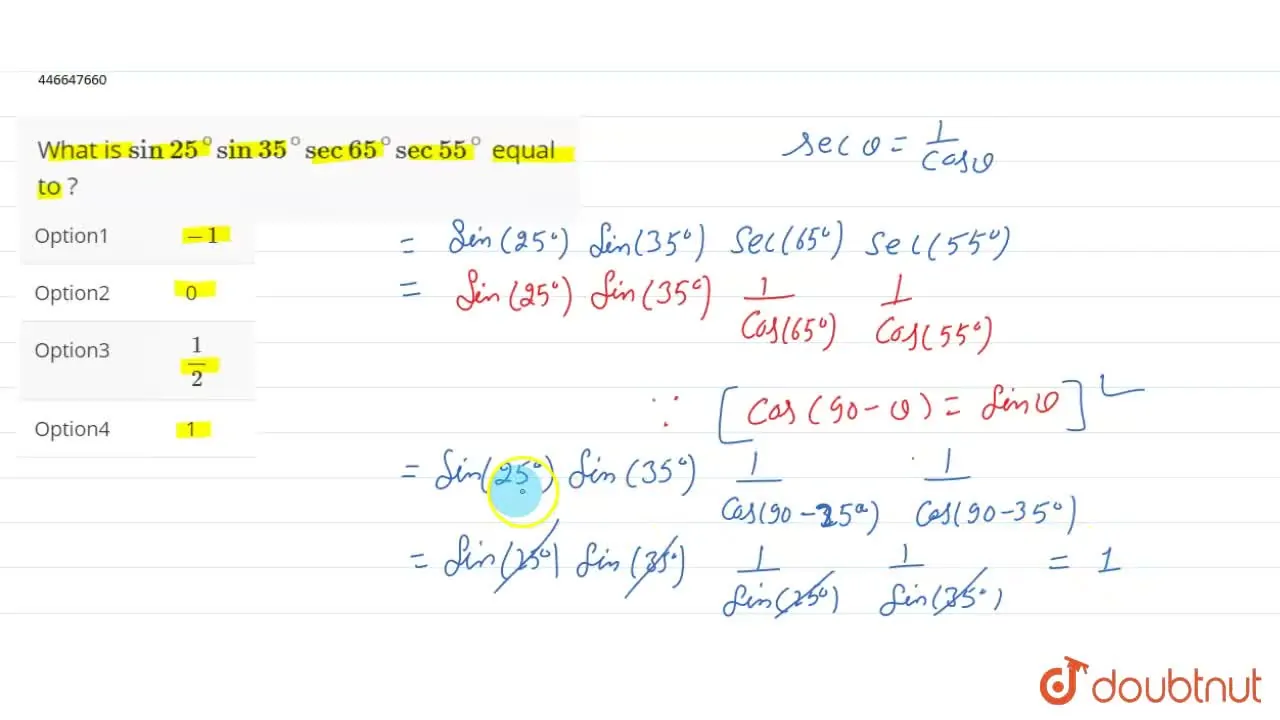 446647660
What is sin 25° sin 35° sec 65° sec 55° equal
to ?
Option1 −1
Option2 0
Option3 1/2
Option4 1
sec θ = 1/Cosθ
= Sin(25°) Sin(35°) Sec(65°) Sec(55°)
= Sin(25°) Sin(35°) 1/Cos(65°) 1/Cos(55°)
∵ [Cos(90-θ) = Sinθ]
= Sin(25°) Sin(35°) 1/Cos(90-25°) 1/Cos(90-35°)
= Sin(25°) Sin(35°) 1/Sin(25°) 1/Sin(35°) = 1
doubtnut